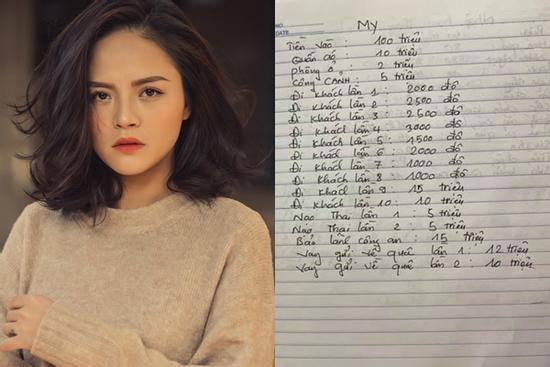 NO.
DATE
My
Tiền vào : 100 triệu
Quần áo : 10 triệu
phòng ở : 2 triệu
Công CANH : 5 triệu
Đi khách lần 1 : 2000 đô
Đi khách lần 2 : 2500 đô
Đi khách lần 3 : 2500 đô
Đi khách lần 4 : 3000 đô
Đi khách lần 5 : 1500 đô
Đi khách lần 6 : 2000 đô
Đi khách lần 7 : 1000 đô
Đi khách lần 8 : 1000 đô
Đi khách lần 9 : 15 triệu
Đi khách lần 10 : 10 triệu
Nạo Thai lần 1 : 5 triệu
Nạo Thai lần 2 : 5 triệu
Bảo lãnh công an : 15 triệu
Vay gửi về quê lần 1 : 12 triệu
Vay gửi về quê lần 2 : 10 triệu